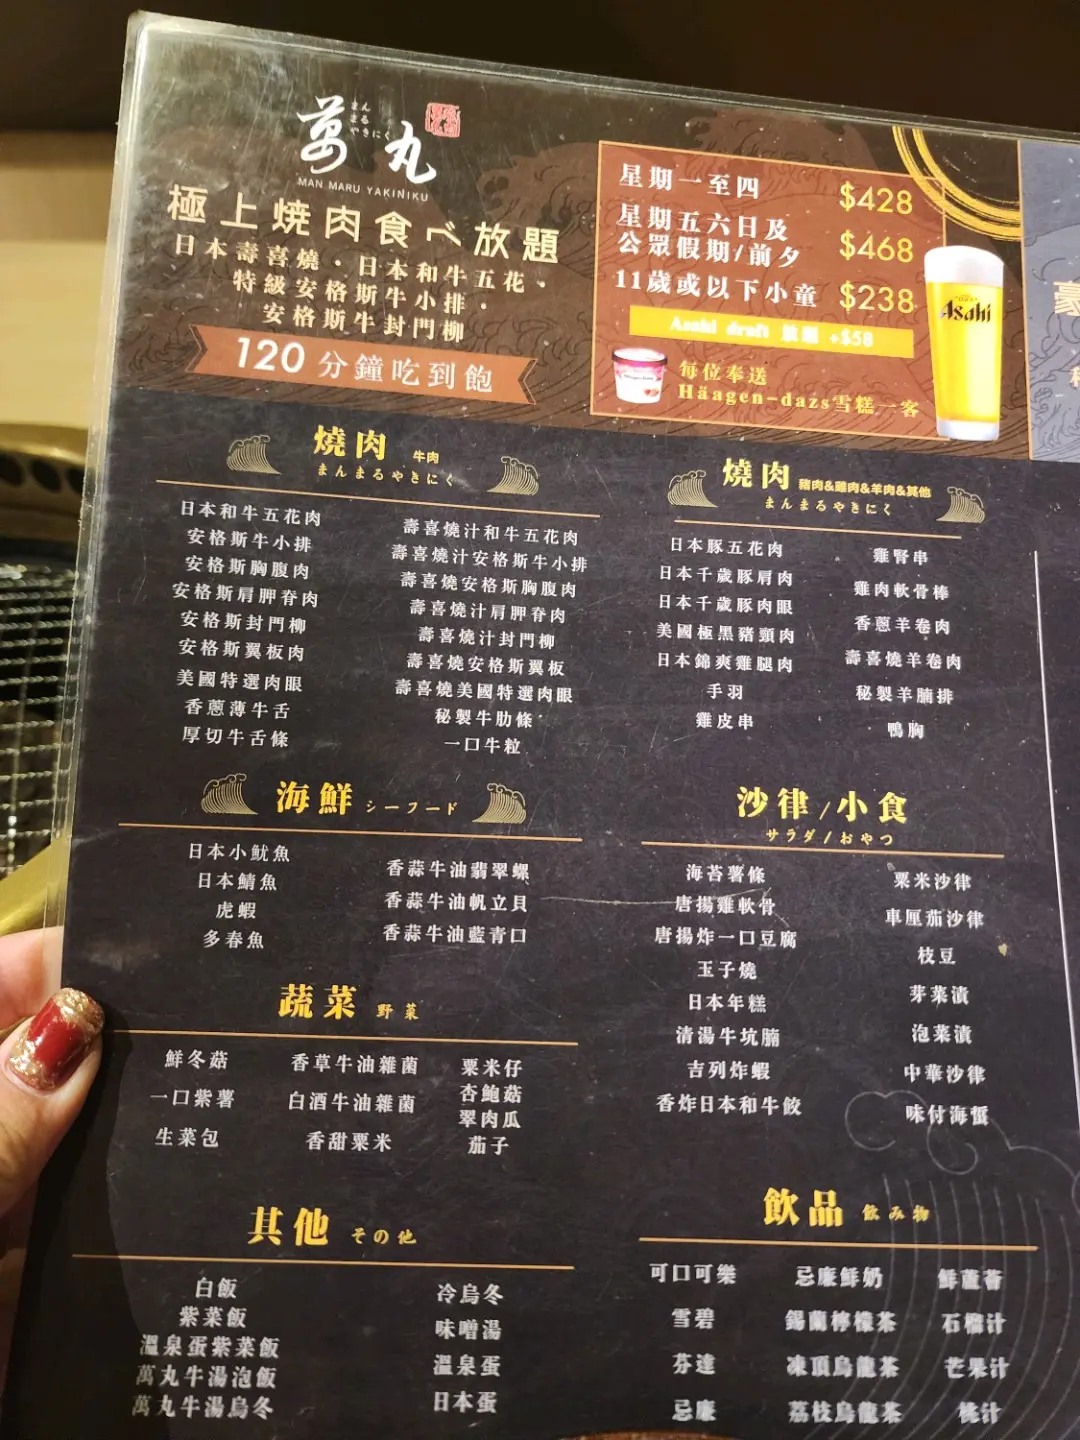 萬丸
まん
まる
やきにく
MAN MARU YAKINIKU
極上焼肉食べ放題
日本壽喜燒・日本和牛五花・
特級安格斯牛小排・
安格斯牛封門柳
120分鐘吃到飽
星期一至四 $428
星期五六日及
公眾假期/前夕 $468
11歲或以下小童 $238
Asahi draft 放題 +$58
每位奉送
Häagen-dazs雪糕一客
Asahi
燒肉 牛肉
まんまるやきにく
日本和牛五花肉
安格斯牛小排
安格斯胸腹肉
安格斯肩胛脊肉
安格斯封門柳
安格斯翼板肉
美國特選肉眼
香蔥薄牛舌
厚切牛舌條
壽喜燒汁和牛五花肉
壽喜燒汁安格斯牛小排
壽喜燒安格斯胸腹肉
壽喜燒汁肩胛脊肉
壽喜燒汁封門柳
壽喜燒安格斯翼板
壽喜燒美國特選肉眼
秘製牛肋條
一口牛粒
燒肉 豬肉&雞肉&羊肉&其他
まんまるやきにく
日本豚五花肉
日本千歲豚肩肉
日本千歲豚肉眼
美國極黑豬頸肉
日本錦爽雞腿肉
手羽
雞皮串
雞腎串
雞肉軟骨棒
香蔥羊卷肉
壽喜燒羊卷肉
秘製羊腩排
鴨胸
海鮮 シーフード
日本小魷魚
日本鯖魚
虎蝦
多春魚
香蒜牛油翡翠螺
香蒜牛油帆立貝
香蒜牛油藍青口
沙律/小食
サラダ/おやつ
海苔薯條
唐揚雞軟骨
唐揚炸一口豆腐
玉子燒
日本年糕
清湯牛坑腩
吉列炸蝦
香炸日本和牛餃
粟米沙律
車厘茄沙律
枝豆
芽菜漬
泡菜漬
中華沙律
味付海蜇
蔬菜 野菜
鮮冬菇
一口紫薯
生菜包
香草牛油雜菌
白酒牛油雜菌
香甜粟米
粟米仔
杏鮑菇
翠肉瓜
茄子
其他 その他
白飯
紫菜飯
溫泉蛋紫菜飯
萬丸牛湯泡飯
萬丸牛湯烏冬
冷烏冬
味噌湯
溫泉蛋
日本蛋
飲品 飲み物
可口可樂
雪碧
芬達
忌廉
忌廉鮮奶
錫蘭檸檬茶
凍頂烏龍茶
荔枝烏龍茶
鮮蘆薈
石榴汁
芒果汁
桃汁